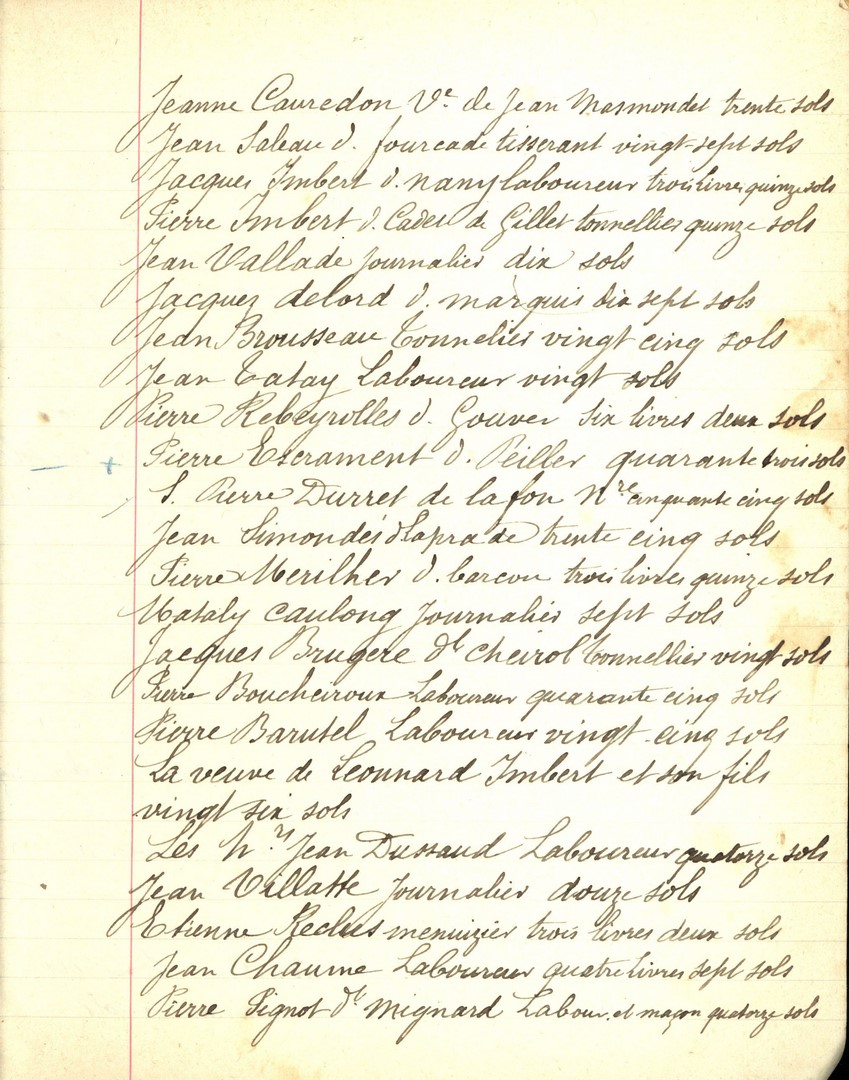 Jeanne Cauredon Ve de Jean Masmondet trente sols
Jean Saleau d. fourcade tisserant vingt sept sols
Jacques Imbert d. nany laboureur trois livres quinze sols
Pierre Imbert d. Cadet de Gillet tonnellier quinze sols
Jean Vallade journalier dix sols
Jacques delord d. marquis dix sept sols
Jean Brousseau tonnelier vingt cinq sols
Jean Tatay Laboureur vingt sols
Pierre Rebeyrolles d. Gouver six livres deux sols
Pierre Escrament d. Peiller quarante trois sols
S. Pierre Durret de lafon Nre cinquante cinq sols
Jean Simondes d Laprade trente cinq sols
Pierre Merilher d. barcou trois livres quinze sols
Mataly caulong journalier sept sols
Jacques Brugere dt cheirol tonnellier vingt sols
Pierre Boucheiroux Laboureur quarante cinq sols
Pierre Barutel Laboureur vingt-cinq sols
La veuve de Leonnard Imbert et son fils
vingt six sols
Les hrs Jean Dussaud Laboureur quatorze sols
Jean Villatte journalier douze sols
Etienne Reclus menuizier trois livres deux sols
Jean Chaume Laboureur quatre livres sept sols
Pierre Pignot dt mignard Labour. et maçon quatorze sols